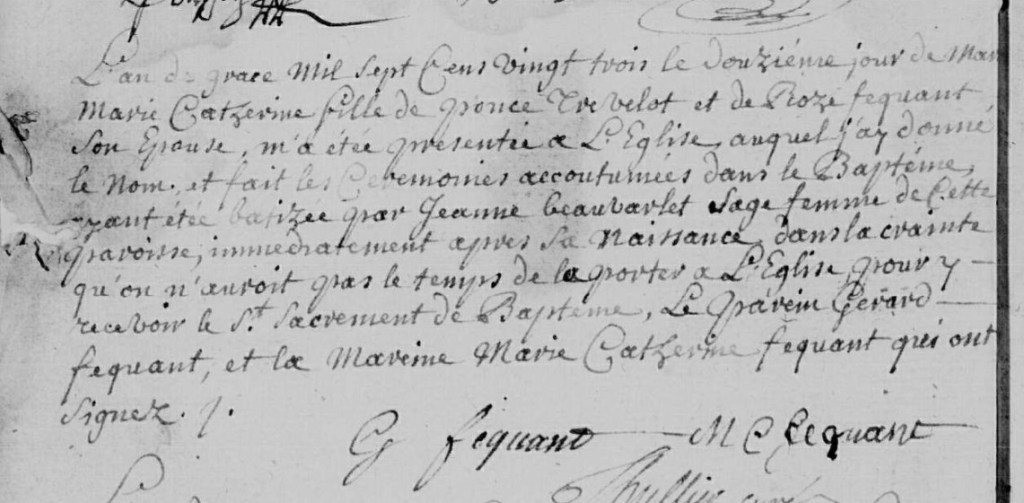 L'an de grace Mil Sept Cens vingt trois le douziéme jour de Mars
Marie Catherine fille de ponce Trevelot et de Roze fequant
Son Epouse, m'a étée presentée a L'Eglise, auquel j'ay donné
le Nom, et fait les Ceremonies accoutumées dans le Baptéme,
ayant étée batizée par Jeanne beauvarlet Sage femme de Cette
paroisse, immediatement apres Sa Naissance, dans la crainte
qu'on n'auroit pas le temps de la porter a L'Eglise pour y
recevoir le St. Sacrement de Bapteme, Le parein Gerard
fequant, et la Mareine Marie Catherine fequant qui ont
Signez ./.
G fequant M C fequant